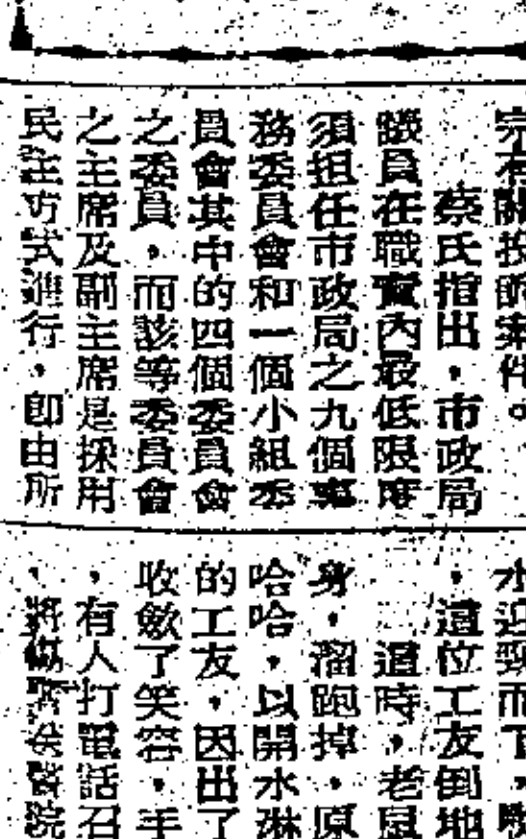 完有關投訴案件。
蔡氏指出，市政局
議員在職責內最低限度
須担任市政局之九個事
務委員會和一個小組委
員會其中的四個委員會
之委員，而該等委員會
之主席及副主席是採用
民主方式進行，即由所
水迎頸而下，
，這位工友倒地
這時，老鼠
身，溜跑掉，原
哈哈，以開水淋
的工友，因出了
收斂了笑容，手
，有人打電話召
，將傷者送醫院